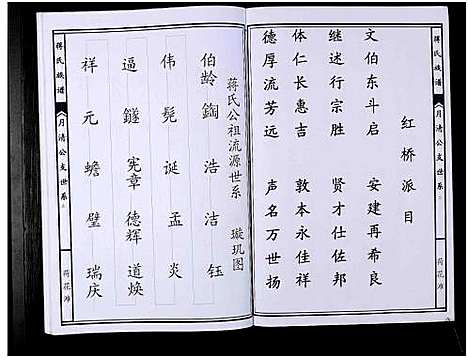 红桥派目
文伯东斗启 安建再希良
继述行宗胜 贤才仕佐邦
体仁长惠吉 敦本永佳祥
德厚流芳远 声名万世扬
蒋氏公祖流源世系 璇玑图
伯龄 鋾 浩 洁 钰
伟 髡 诞 孟 炎
逼 鐩 宪章 德辉 道焕
祥 元 蟾 璧 瑞庆
蒋氏族谱
月清公支世系
荷花滩